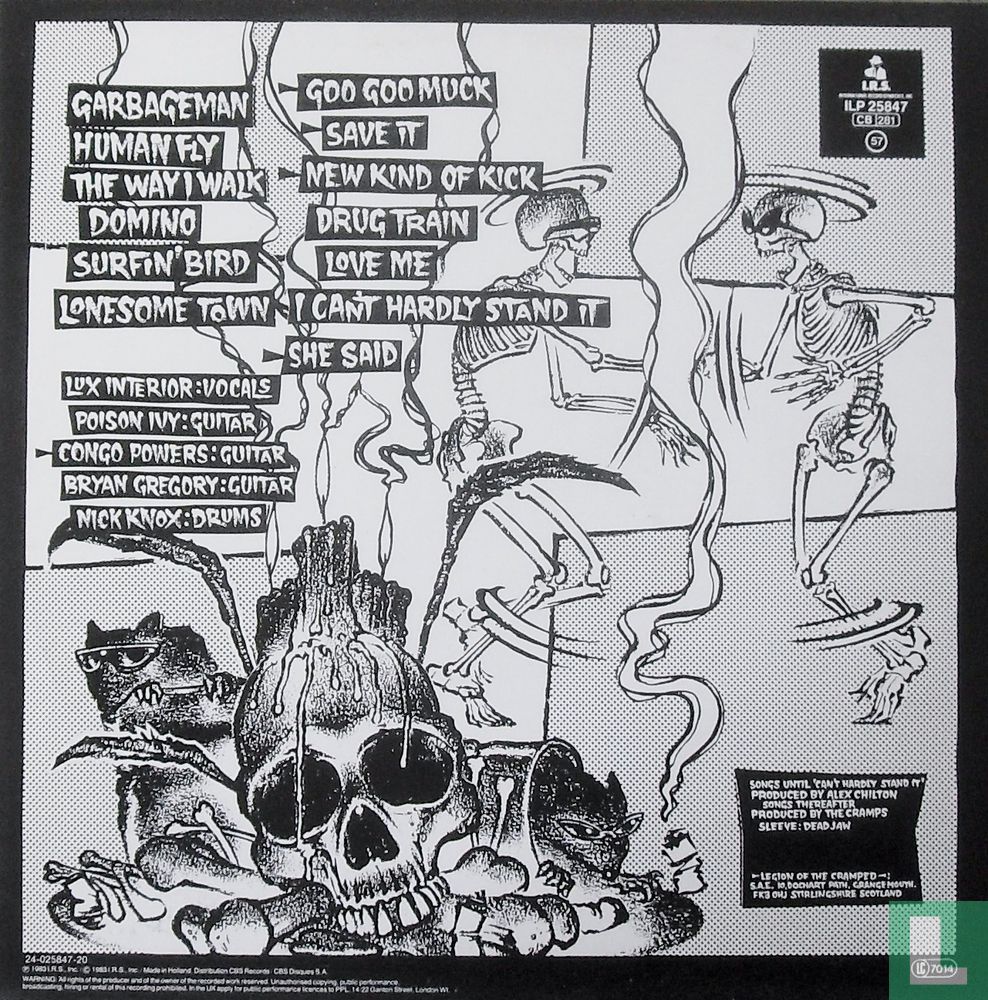 GARBAGEMAN
HUMAN FLY
THE WAY I WALK
DOMINO
SURFIN' BIRD
LONESOME TOWN
GOO GOO MUCK
SAVE IT
NEW KIND OF KICK
DRUG TRAIN
LOVE ME
I CAN'T HARDLY STAND IT
SHE SAID
LUX INTERIOR: VOCALS
POISON IVY: GUITAR
CONGO POWERS: GUITAR
BRYAN GREGORY: GUITAR
NICK KNOX: DRUMS
I.R.S.
INTERNATIONAL RECORD SYNDICATE, INC
ILP 25847
CB 281
57
SONGS UNTIL 'CAN'T HARDLY STAND IT'
PRODUCED BY ALEX CHILTON
SONGS THEREAFTER
PRODUCED BY THE CRAMPS
SLEEVE: DEADJAW
LEGION OF THE CRAMPED
S.A.E. 10, DOCHART PATH, GRANGEMOUTH.
FK3 OHJ STIRLINGSHIRE SCOTLAND
24-025847-20
℗ 1983 I.R.S., Inc. / © 1983 I.R.S., Inc. / Made in Holland. Distribution CBS Records / CBS Disques S.A.
WARNING: All rights of the producer and of the owner of the recorded work reserved. Unauthorised copying, public performance,
broadcasting, hiring or rental of this recording prohibited. In the UK apply for public performance licences to PPL, 14-22 Ganton Street, London W1.
LC 7014